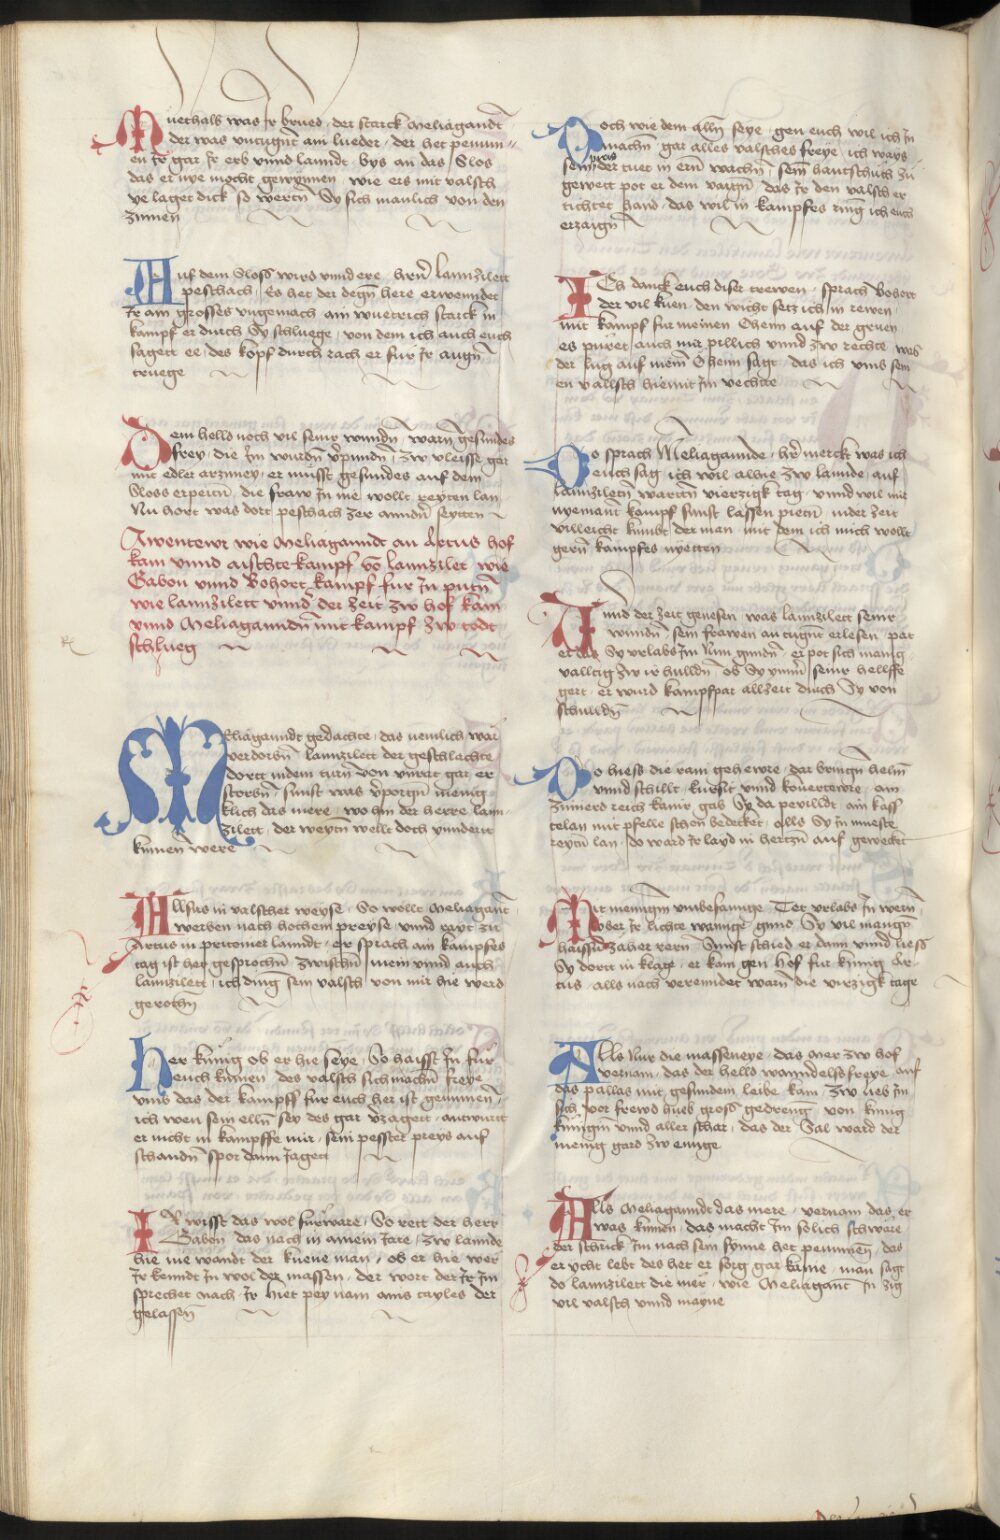 Muethals was Jr brued · der starck Meliagandt
der was untugnt ain lueder · der het penum
en Jr gar Jr erb unnd lanndt · bys an das Slos
das er nye mocht gewynnen · wie ers mit valsch
ye laget dick so wertn Sy sich manlich von den
zinnen
Auf dem Sloss wirs unnd ere · hern lannzilett
peschach · Es het der degn here erwennder
Jr ain grosses ungemach am wuetrich starck in
kampf er durch Sy schluege · von dem ich auch euch
sagett ee · des kopf durch rach er fur Jr augn
truege
Dem helld noch vil seinr wundn warn gesundes
frey · die Jm wurdn verpundn · zw vleisse gar
mit edler arzney · er muesst gesundes auf dem
Sloss erpeitn · die fraw Jn nie wollt reyten lan
Nu hort was dort peschach zer anndn seytten
Awentewr wie Meliagandt an Artus hof
kam unnd aischte kampf von lannzilet wie
Gabon unnd Bohort kampf fur Jn putn
wie lannzilett unnd der zeit zw hof kam
unnd Meliagandn mit kampf zw todt
schlueg
Meliagaundt gedachte · das nemlich war
verdorbn lannzilett der geschlachte
dortt indem turn von unrat gar er
storbn · sunst was verporgn menig
klich das mere · wo hin der herre lann
zilett · der weytn wellt doch hyndert
kumen were
Allsus in valscher weyse · So wollt Meliagant
werben nach hochem preyse · unnd rayt zu
Artus in pritonier lanndt · er sprach ain kampfes
tag ist her gesprochn zwischn mein unnd auch
lannzilett · ich ding sein valsch von mir hie werd
gerochn
Her kunig ob er hie seye · So haisst Jn fur
euch kumen · des valsch sich machn freye
unns das der kampff fur euch her ist genummen
ich wen sein elln sey des gar verzagett · antwurtt
er nicht in kampffe mir · sein pesster preys auf
schandn spor dann jagett
Jr wisst das wol furware · So rett der herr
Gabon das nach in ainem Jare · zw lannde
hie nie wandt der kuene man · ob er hie wer
Jr kenndt Jn wol der massen · der wort der Jr Jm
sprechet nach · Jr hiet pey nam ains tayles der
gelassen
Doch wie dem alln seye · gen euch wil ich Jn
machn gar alles valsches freye · ich ways
sein der tuet in ern wachn · sein hantschuch zu
gewett pot er dem vaign · das Jr den valsch er
tichtet hand · das wil in kampfes ring ich euch
erzaign
Ich danck euch diser trewen · sprach Bohort
der vil kuen · den wicht setz ich in rewen
mit kampf fur meinen Ohenn auf der gruen
es puret auch mir pillich unnd zw rechte was
der lug auf mein Ohenn sagt · das ich unns sein
en vallsch hiemit Jm vechtte
Do sprach Meliagannde · her merck was ich
euch sag · ich wil alhie zw lannde · auf
lannziletn wartn vierzigk tag · unnd wil mit
nyemant kampf sunst lassen pietn · inder zeit
villeicht kumbt der man · mit dem ich mich wollt
gern kampfes nyetten
Unnd der zeit genesen · was lannzilett seinr
wundn · sein frawen an tugnt erlesen · pat
er das Sy urlabs Jm Nun gundn · er pot sich manig
valltig zw ir hulldn · ob Sy ymmer seinr hellffe
gert · er wurd kampfpar allzeit durch Sy von
schulldn
Do hiess die rain gehewre · dar bringn helm
unnd schillt · kursit unnd kouertewre · ain
zimierd reich kainr gab Sy da pevilldt · ain kass
telan mit pfelle schon bedecket · Alls Sy Jn mueste
reytn lan · do ward Jr layd in hertzn auf gewecket
Mit menigm umbefannge · Tet urlabs Jn wern
uber Jr lichte wannge · gund Sy vil mangn
haissn zaher rern · Sunst schied er dann unnd liess
Sy dortt in klage · er kam gen hof fur kunig Ar
tus · alls nach verenndet warn die virzigk tage
Alls Nur die masseneye · das mer zw hof
vernam · das der helld wanndels freye auf
das pallas mit gesundem leibe kam · zw lieb Jm
sich vor frewd hueb gross gedrenng von kunig
kunigin unnd aller schar · das der Sal ward der
menig gard zw ennge
Alls Meliagannde das mere · vernam das er
was kumen · das macht Jm solich schwere
der schrick Jm nach sein synne het penummen · das
er ycht lebt des het er sorg gar kaine · man sagt
do lannzilett die mer · wie Meliagant Jn zig
vil valsch unnd mayne